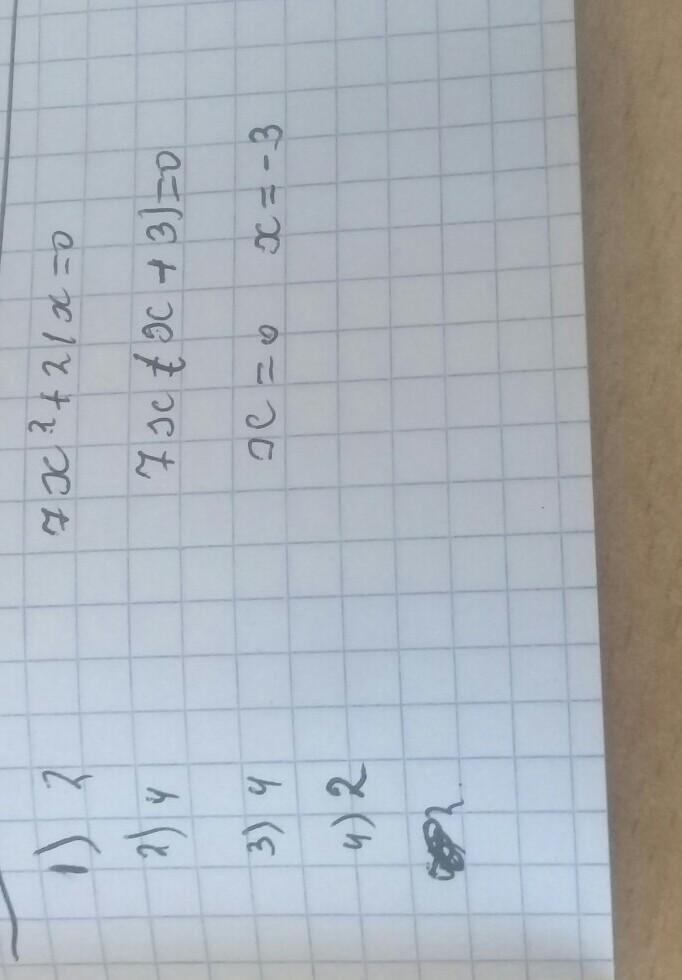 1) 2 7x²+21x=0
2) 4 7x(x+3)=0
3) 4 x=0 x=-3
4) 2
2.